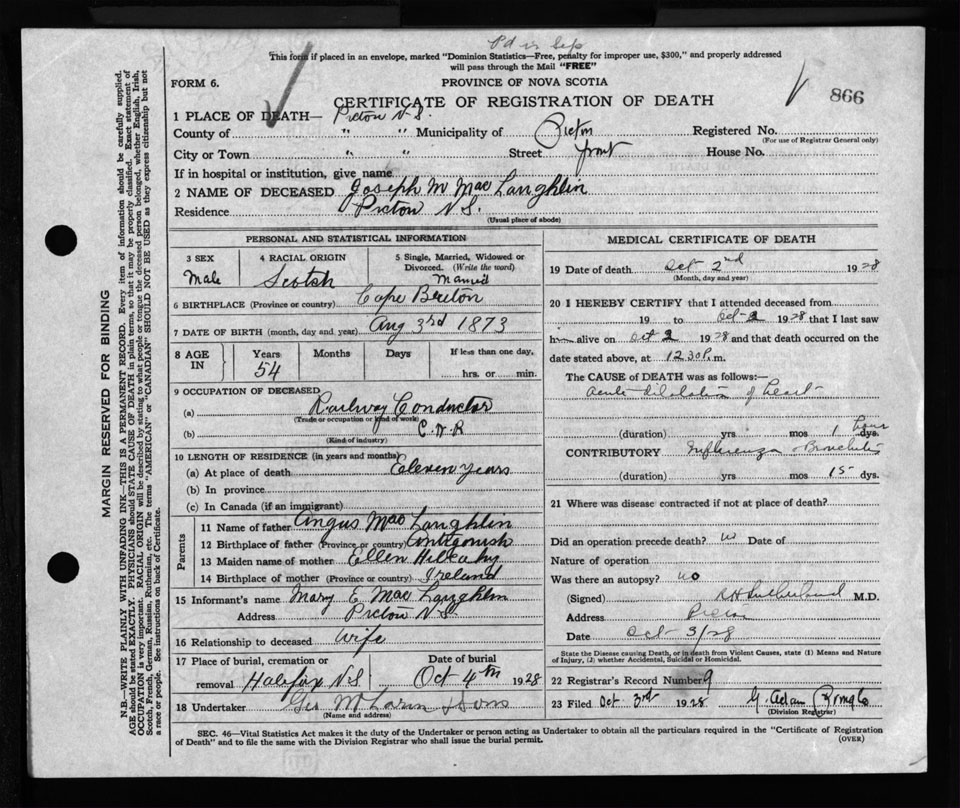 This form if placed in an envelope, marked "Dominion Statistics—Free, penalty for improper use, $300," and properly addressed
will pass through the Mail "FREE"
FORM 6.
PROVINCE OF NOVA SCOTIA
866
CERTIFICATE OF REGISTRATION OF DEATH
1 PLACE OF DEATH— Pictou N.S.
County of " " Municipality of Pictou Registered No.
(For use of Registrar General only)
City or Town " " Street Front House No.
If in hospital or institution, give name
2 NAME OF DECEASED Joseph M MacLaughlin
Residence Pictou N.S.
(Usual place of abode)
PERSONAL AND STATISTICAL INFORMATION
3 SEX
Male
4 RACIAL ORIGIN
Scotch
5 Single, Married, Widowed or
Divorced. (Write the word)
Married
6 BIRTHPLACE (Province or country) Cape Breton
7 DATE OF BIRTH (month, day and year) Aug 3rd 1873
8 AGE IN
Years Months Days If less than one day,
54 hrs. or min.
9 OCCUPATION OF DECEASED
(a) Railway Conductor
(Trade or occupation or kind of work)
(b) C.N.R
(Kind of industry)
10 LENGTH OF RESIDENCE (in years and months)
(a) At place of death Eleven years
(b) In province
(c) In Canada (if an immigrant)
Parents
11 Name of father Angus MacLaughlin
12 Birthplace of father (Province or country) Antigonish
13 Maiden name of mother Ellen
14 Birthplace of mother (Province or country) Ireland
15 Informant's name Mary E. MacLaughlin
Address Pictou N.S.
16 Relationship to deceased Wife
17 Place of burial, cremation or
removal Halifax N.S
Date of burial
Oct 4th 1928
18 Undertaker Geo McLaren & Sons
(Name and address)
MEDICAL CERTIFICATE OF DEATH
19 Date of death Oct 2nd 1928
(Month, day and year)
20 I HEREBY CERTIFY that I attended deceased from
19 to Oct 2 1928 that I last saw
him alive on Oct 2 1928 and that death occurred on the
date stated above, at 12.30 P.m.
The CAUSE OF DEATH was as follows:—
Acute dilatation of heart
(duration) yrs mos 1 hour dys.
CONTRIBUTORY Influenza Bronchitis
(duration) yrs mos 15 dys.
21 Where was disease contracted if not at place of death?
Did an operation precede death? no Date of
Nature of operation
Was there an autopsy? no
(Signed) Sutherland M.D.
Address Pictou
Date Oct 3/28
State the Disease causing Death, or in death from Violent Causes, state (1) Means and Nature
of Injury, (2) whether Accidental, Suicidal or Homicidal.
22 Registrar's Record Number 9
23 Filed Oct 3rd 1928
(Division Registrar)
SEC. 46—Vital Statistics Act makes it the duty of the Undertaker or person acting as Undertaker to obtain all the particulars required in the "Certificate of Registration
of Death" and to file the same with the Division Registrar who shall issue the burial permit.
(OVER)
MARGIN RESERVED FOR BINDING
N.B.—WRITE PLAINLY WITH UNFADING INK—THIS IS A PERMANENT RECORD. Every item of information should be carefully supplied.
AGE should be stated EXACTLY. PHYSICIANS should STATE CAUSE OF DEATH in plain terms, so that it may be properly classified. Exact statement of
OCCUPATION is very important. RACIAL ORIGIN will be described by stating to what people or tongue the deceased person belonged, whether English, Irish,
Scotch, French, German, Russian, Ruthenian, etc. The terms "AMERICAN" or "CANADIAN" SHOULD NOT BE USED as they express citizenship but not
a race or people. See instructions on back of Certificate.